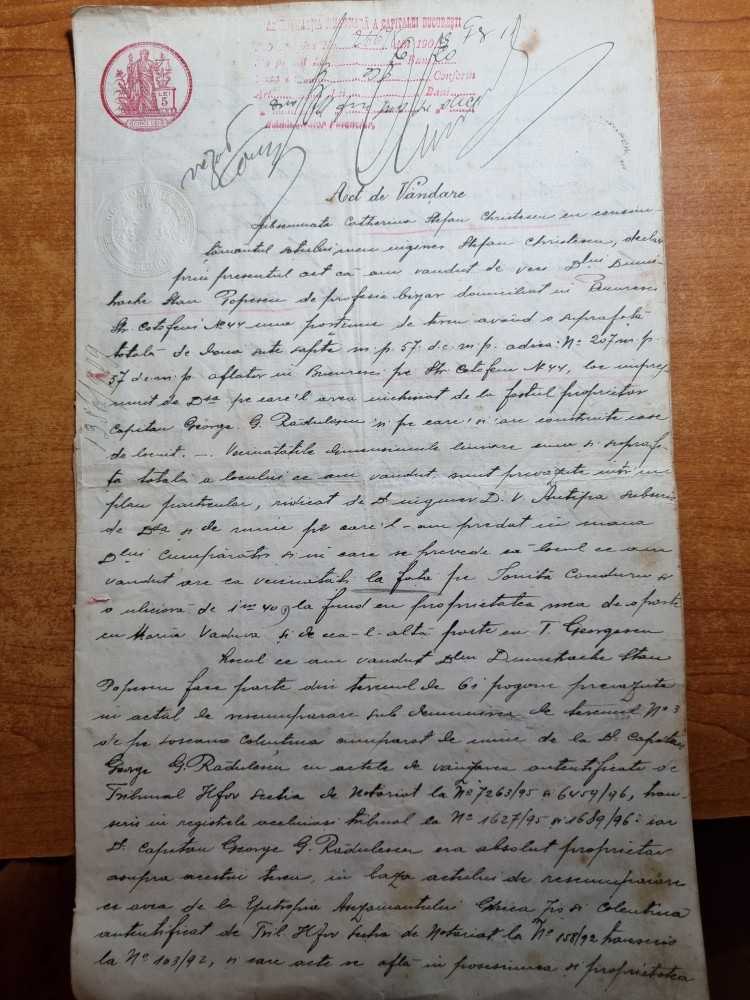 ADMINISTRAȚIA FINANCIARĂ A CAPITALEI BUCUREȘTI
190
Bani
Conform
Art. Lei Bani
Administrator Financiar,
LEI
5
Act de Vândare
Subsemnata Catherina Ștefan Christescu cu consim-
țamantul sotului meu inginer Stefan Christescu, declar
prin presentul act că am vandut de veci Dlui Dumi-
trache Stan Popescu de profesie birjar domiciliat in Bucuresci
Str. Cotofeni No 44 una portiune de teren având o suprafață
totală de doua sute sapte m.p. 57 d.c.m.p. adica: No 207 m.p.
57 d.c.m.p. aflator in Bucuresci pe Str. Cotofeni No 44, loc impre-
muit de Dsa pe care'l avea inchiriat de la fostul proprietar
Capitan George G. Rădulescu si pe care'si are construite case
de locuit. — Vecinatătile dimensiunile liniare cum si suprafa-
ța totală a locului ce am vandut, sunt prevăzute intr'un
plan particular, ridicat de D. inginer D. V. Antipa subscris
de Dsa si de mine pe care'l-am predat in mana
Dlui Cumpărător si in care se prevede că locul ce am
vandut are ca vecinatăti la fată pe Ioniță Conduru si
o ulicioră de 1m 40, la fund cu proprietatea mea de oparte
cu Maria Vaduva si de cea-l-altă parte cu T. Georgescu
Locul ce am vandut Dlui Dumitrache Stan
Popescu face parte din terenul de 6½ pogone prevazute
in actul de rescumparare sub denumirea de terenul No 3
de pe soseaua Colentina cumparat de mine de la D. Capitan
George G. Rădulescu cu actele de vanzare autentificate de
Tribunal Ilfov Sectia de Notariat la No 7263/95 si 6459/96, tran-
scris in registrele aceluiasi tribunal la No 1627/95 si 1689/96: iar
D. Capitan George G. Rădulescu era absolut proprietar
asupra acestui teren, in baza actului de rescumparare
ce avea de la Epitropia Asezamantului Ghica Tei si Colentina
autentificat de Trib. Ilfov Sectia de Notariat la No 158/92 transcris
la No 103/92, si care acte se află in posesiunea si proprietatea